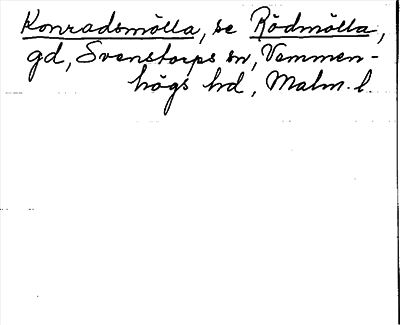 Konradsmölla, se Rödmölla,
gd, Svenstorps sn, Vemmen-
högs hd, Malm. l.